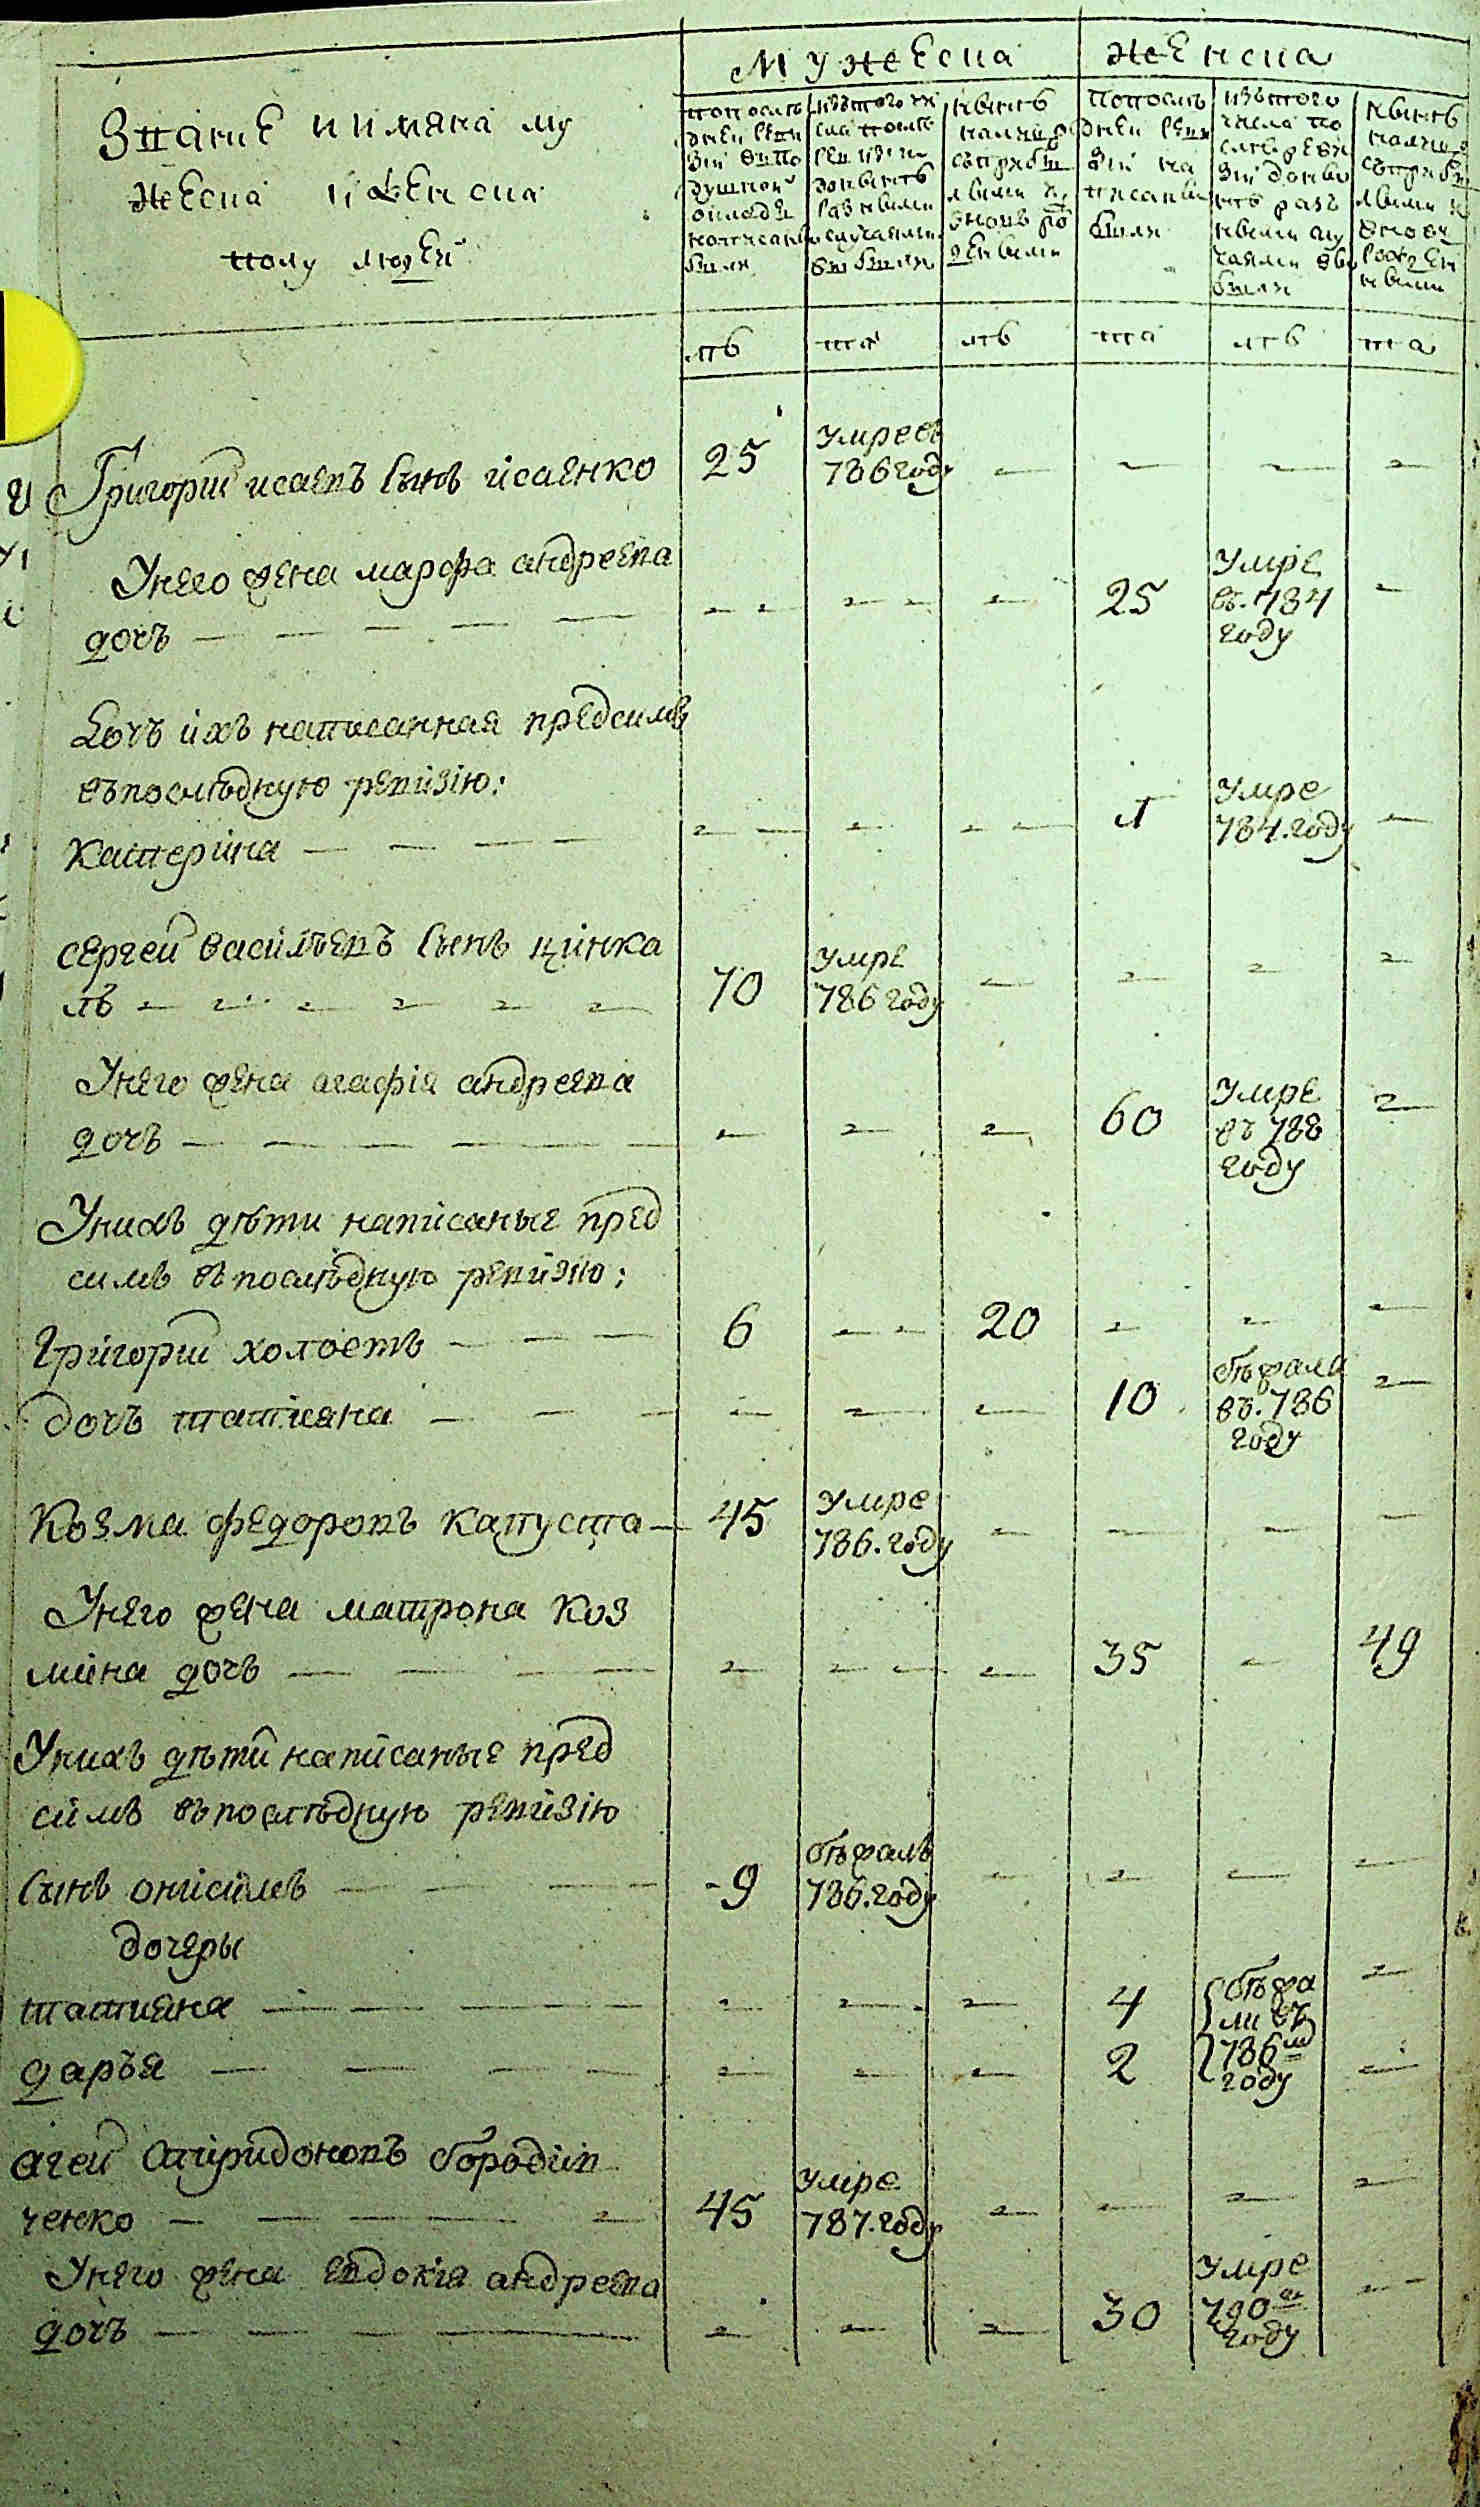 Мужеска Женска
Званіе и имяна му
жеска и женска
полу людей
попослѣ
дней реви
зіи въ по
душной
окладъ
написаны
были
изътого чи
сла послѣ
ревизіи
донынѣ
разными
случаями
выбыли
нынѣ
налицо
съприбы
лыми и
вновь ро
жденными
Попослѣ
дней реви
зіи на
писаны
были
изътого
числа по
слѣ реви
зіи доны
нѣ разъ
ными слу
чаями вы
были
нынѣ
налицо
съприбы
лыми и
вновь
рожден
ными
лѣ та лѣ та лѣ та
Григорій исаевъ сынъ исаенко 25 умре въ
786 году
Унего жена марфа андреева
дочь 25 умре
въ. 784
году
Дочъ ихъ написанная предсимъ
въпослѣдную ревизію:
Катерина 1 умре
784. году
сергей василъевъ сынъ цинка
лъ 70 умре
786 году
Унего жена агафія андреева
дочъ 60 умре
въ 788
году
Унихъ дѣти написаные пред
симъ въпослѣдную ревизію:
Григорій холостъ 6 20
дочъ татияна 10 бѣжала
въ. 786
году
Козма федоровъ капуста 45 умре
786. году
Унего жена матрона коз
мина дочъ 35 49
Унихъ дѣти написаные пред
симъ въпослѣдную ревизію
сынъ онисимъ 9 бѣжалъ
786. году
дочеры
татияна 4 бѣжа
ли въ
даръя 2 786м
году
агей спиридоновъ бородин
ченко 45 умре
787. году
Унего жена евдокия андреева
дочъ 30 умре
790м
году